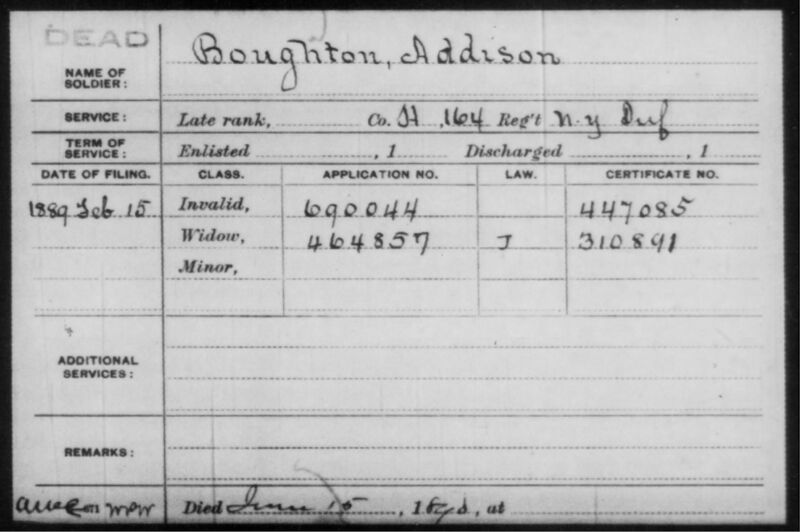 DEAD
NAME OF SOLDIER: Boughton, Addison
SERVICE: Late rank, Co. H, 164 Reg't N.Y. Inf
TERM OF SERVICE: Enlisted , 1 Discharged , 1
DATE OF FILING. CLASS. APPLICATION NO. LAW. CERTIFICATE NO.
1889 Feb 15 Invalid, 690044 447085
Widow, 464857 J 310891
Minor,
ADDITIONAL SERVICES:
REMARKS:
Died June 15, 18, at